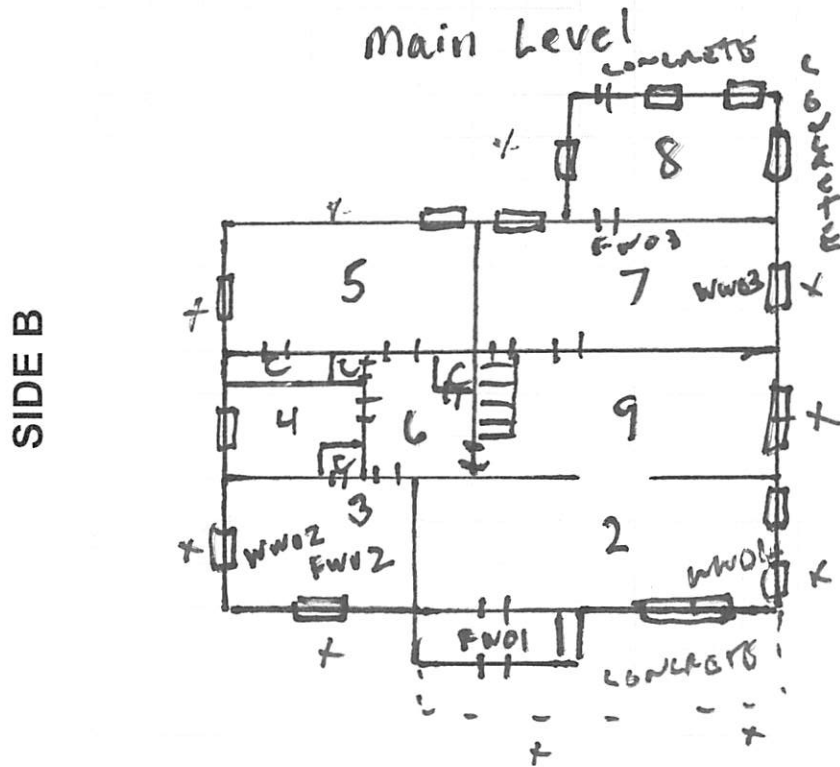 Main Level
CONCRETE
CONCRETE
8
FW03
5
7
WW03
SIDE B
C
C
C
4
6
9
C
3
2
WW02
FW02
WW01
FW01
CONCRETE